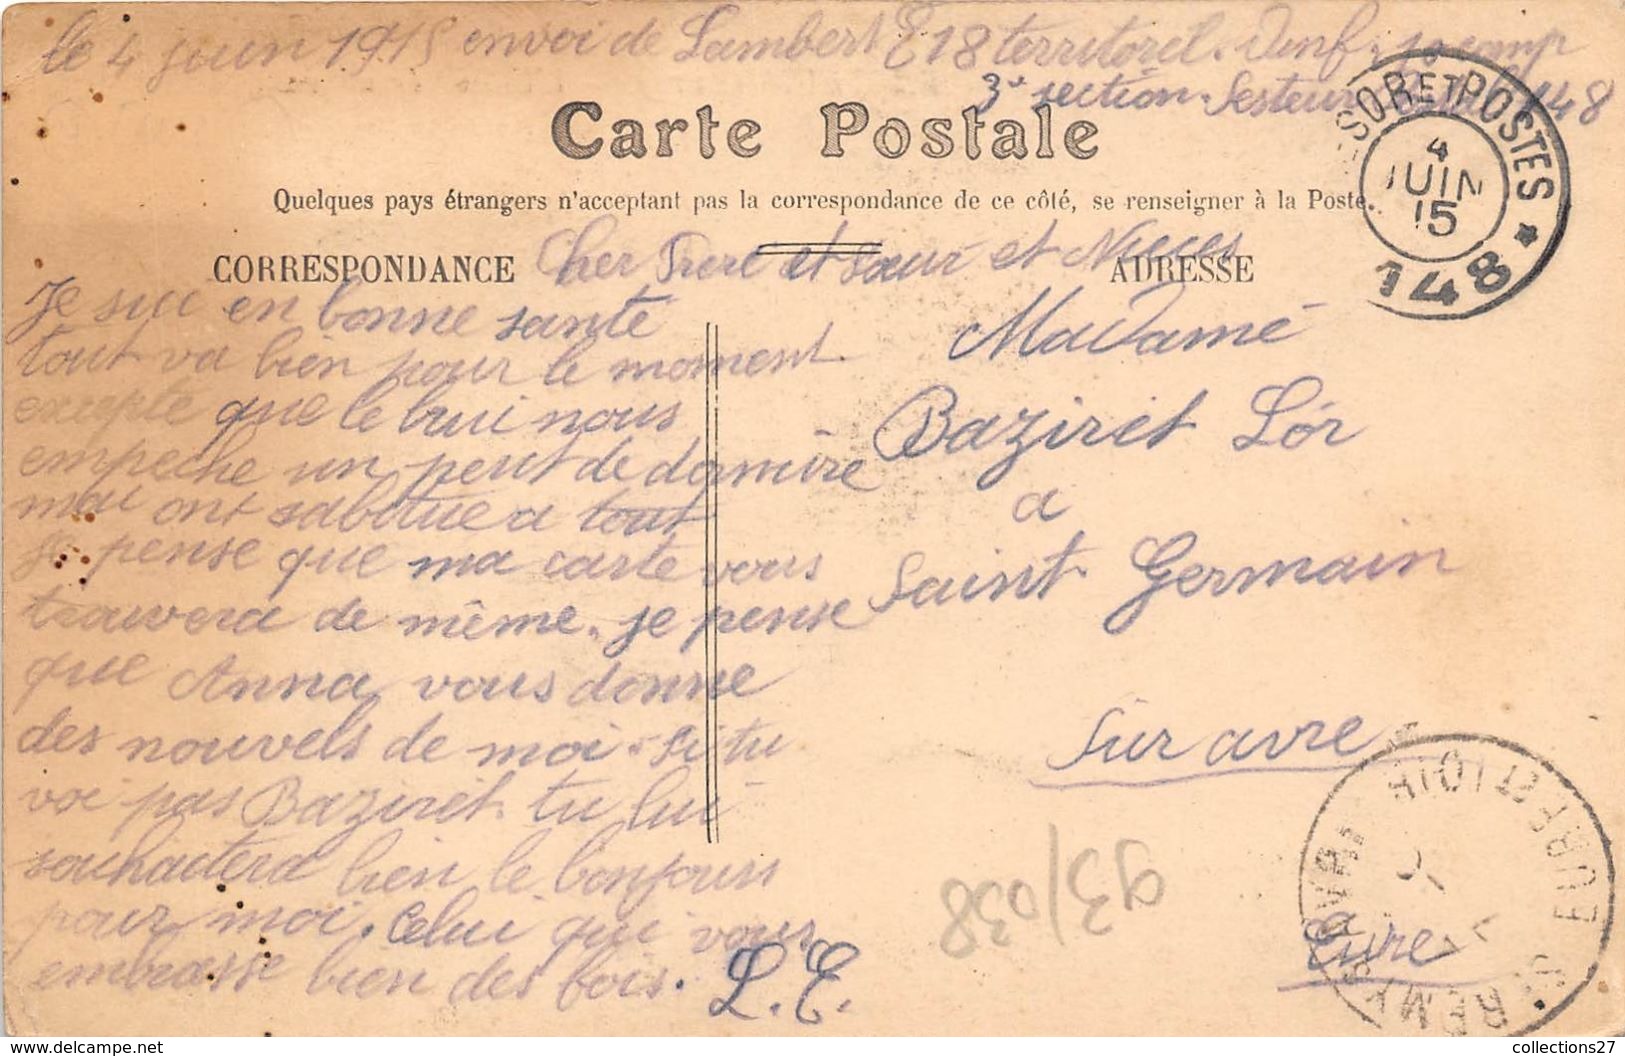 le 4 juin 1915 envoi de Lambert E 18 territorel. Dinf. 10 comp
3e section. Secteur 148
Carte Postale
Quelques pays étrangers n'acceptant pas la correspondance de ce côté, se renseigner à la Poste.
CORRESPONDANCE
ADRESSE
Cher Frere et Sœur et Nieces
Je sui en bonne sante
tout va bien pour le moment.
excepte que le brui nous
empeche un peut de dormire
mai ont sabitue a tout
je pense que ma carte vous
trouvera de même. je pense
que Anna vous donne
des nouvels de moi. si tu
voi pas Baziret tu lui
souhaitera bien le bonjours
pour moi. celui qui vous
embrasse bien des fois. L. E.
Madame
Baziret Lór
a
Saint Germain
Sur avre
Eure
TRESOR ET POSTES
4
JUIN
15
* 148 *
93/038
EURE
collections27